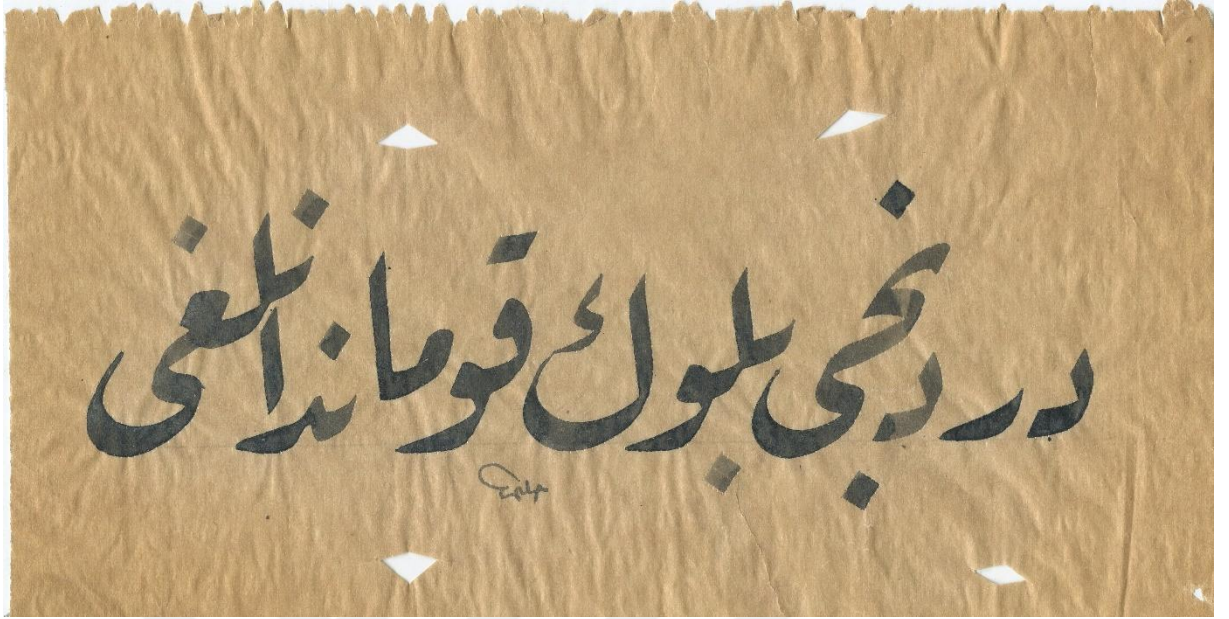 دردنجی بلوك قوماندانلغی